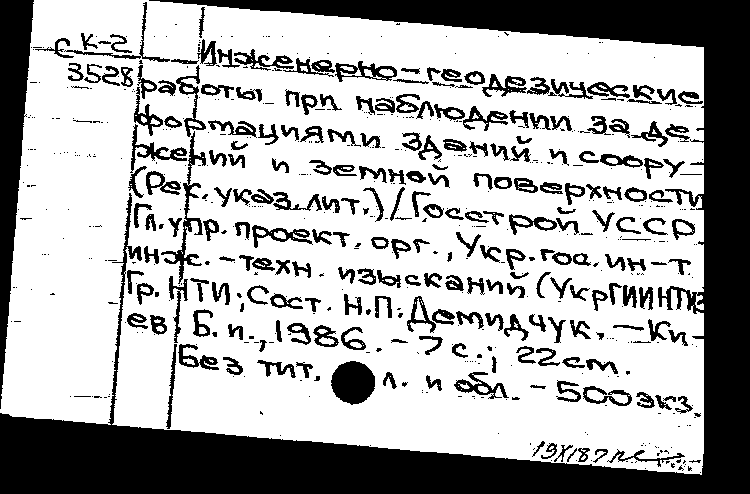 С К-2
3528
Инженерно-геодезические
работы при наблюдении за де-
формациями зданий и соору-
жений и земной поверхности
(Рек. указ. лит.) / Госстрой УССР
Гл. упр. проект. орг., Укр. гос. ин-т
инж.-техн. изысканий (УкрГИИНТИЗ
Гр. НТИ; Сост. Н.П. Демидчук. — Ки-
ев: Б. и., 1986. - 7 с.; 22 см.
Без тит. л. и обл. - 500 экз.